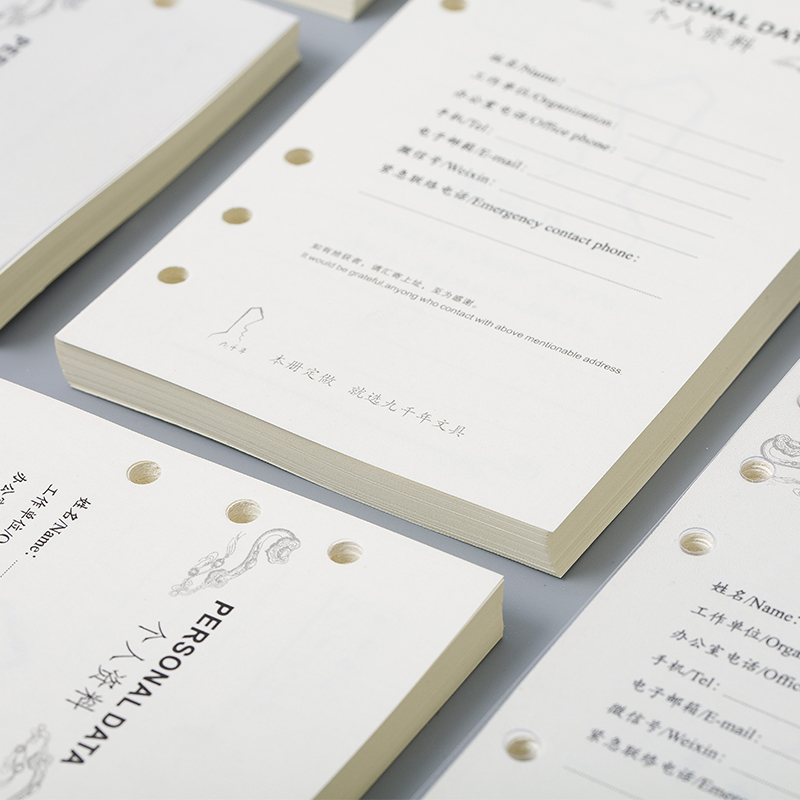 PE
PERSONAL DATA
个人资料
姓名/Name:
工作单位/Organization:
办公室电话/Office phone:
手机/Tel:
电子邮箱/E-mail:
微信号/Weixin:
紧急联络电话/Emergency contact phone:
如有拾获者，请汇寄上址，至为感谢。
It would be grateful,anyong who contact with above mentionable address
九千年
本册定做 就选九千年文具
姓名/Name:
工作单位/O
办公
PERSONAL DATA
个人资料
姓名/Name:
工作单位/Orga
办公室电话/Offic
手机/Tel:
电子邮箱/E-mail:
微信号/Weixin:
紧急联络电话/Emerg